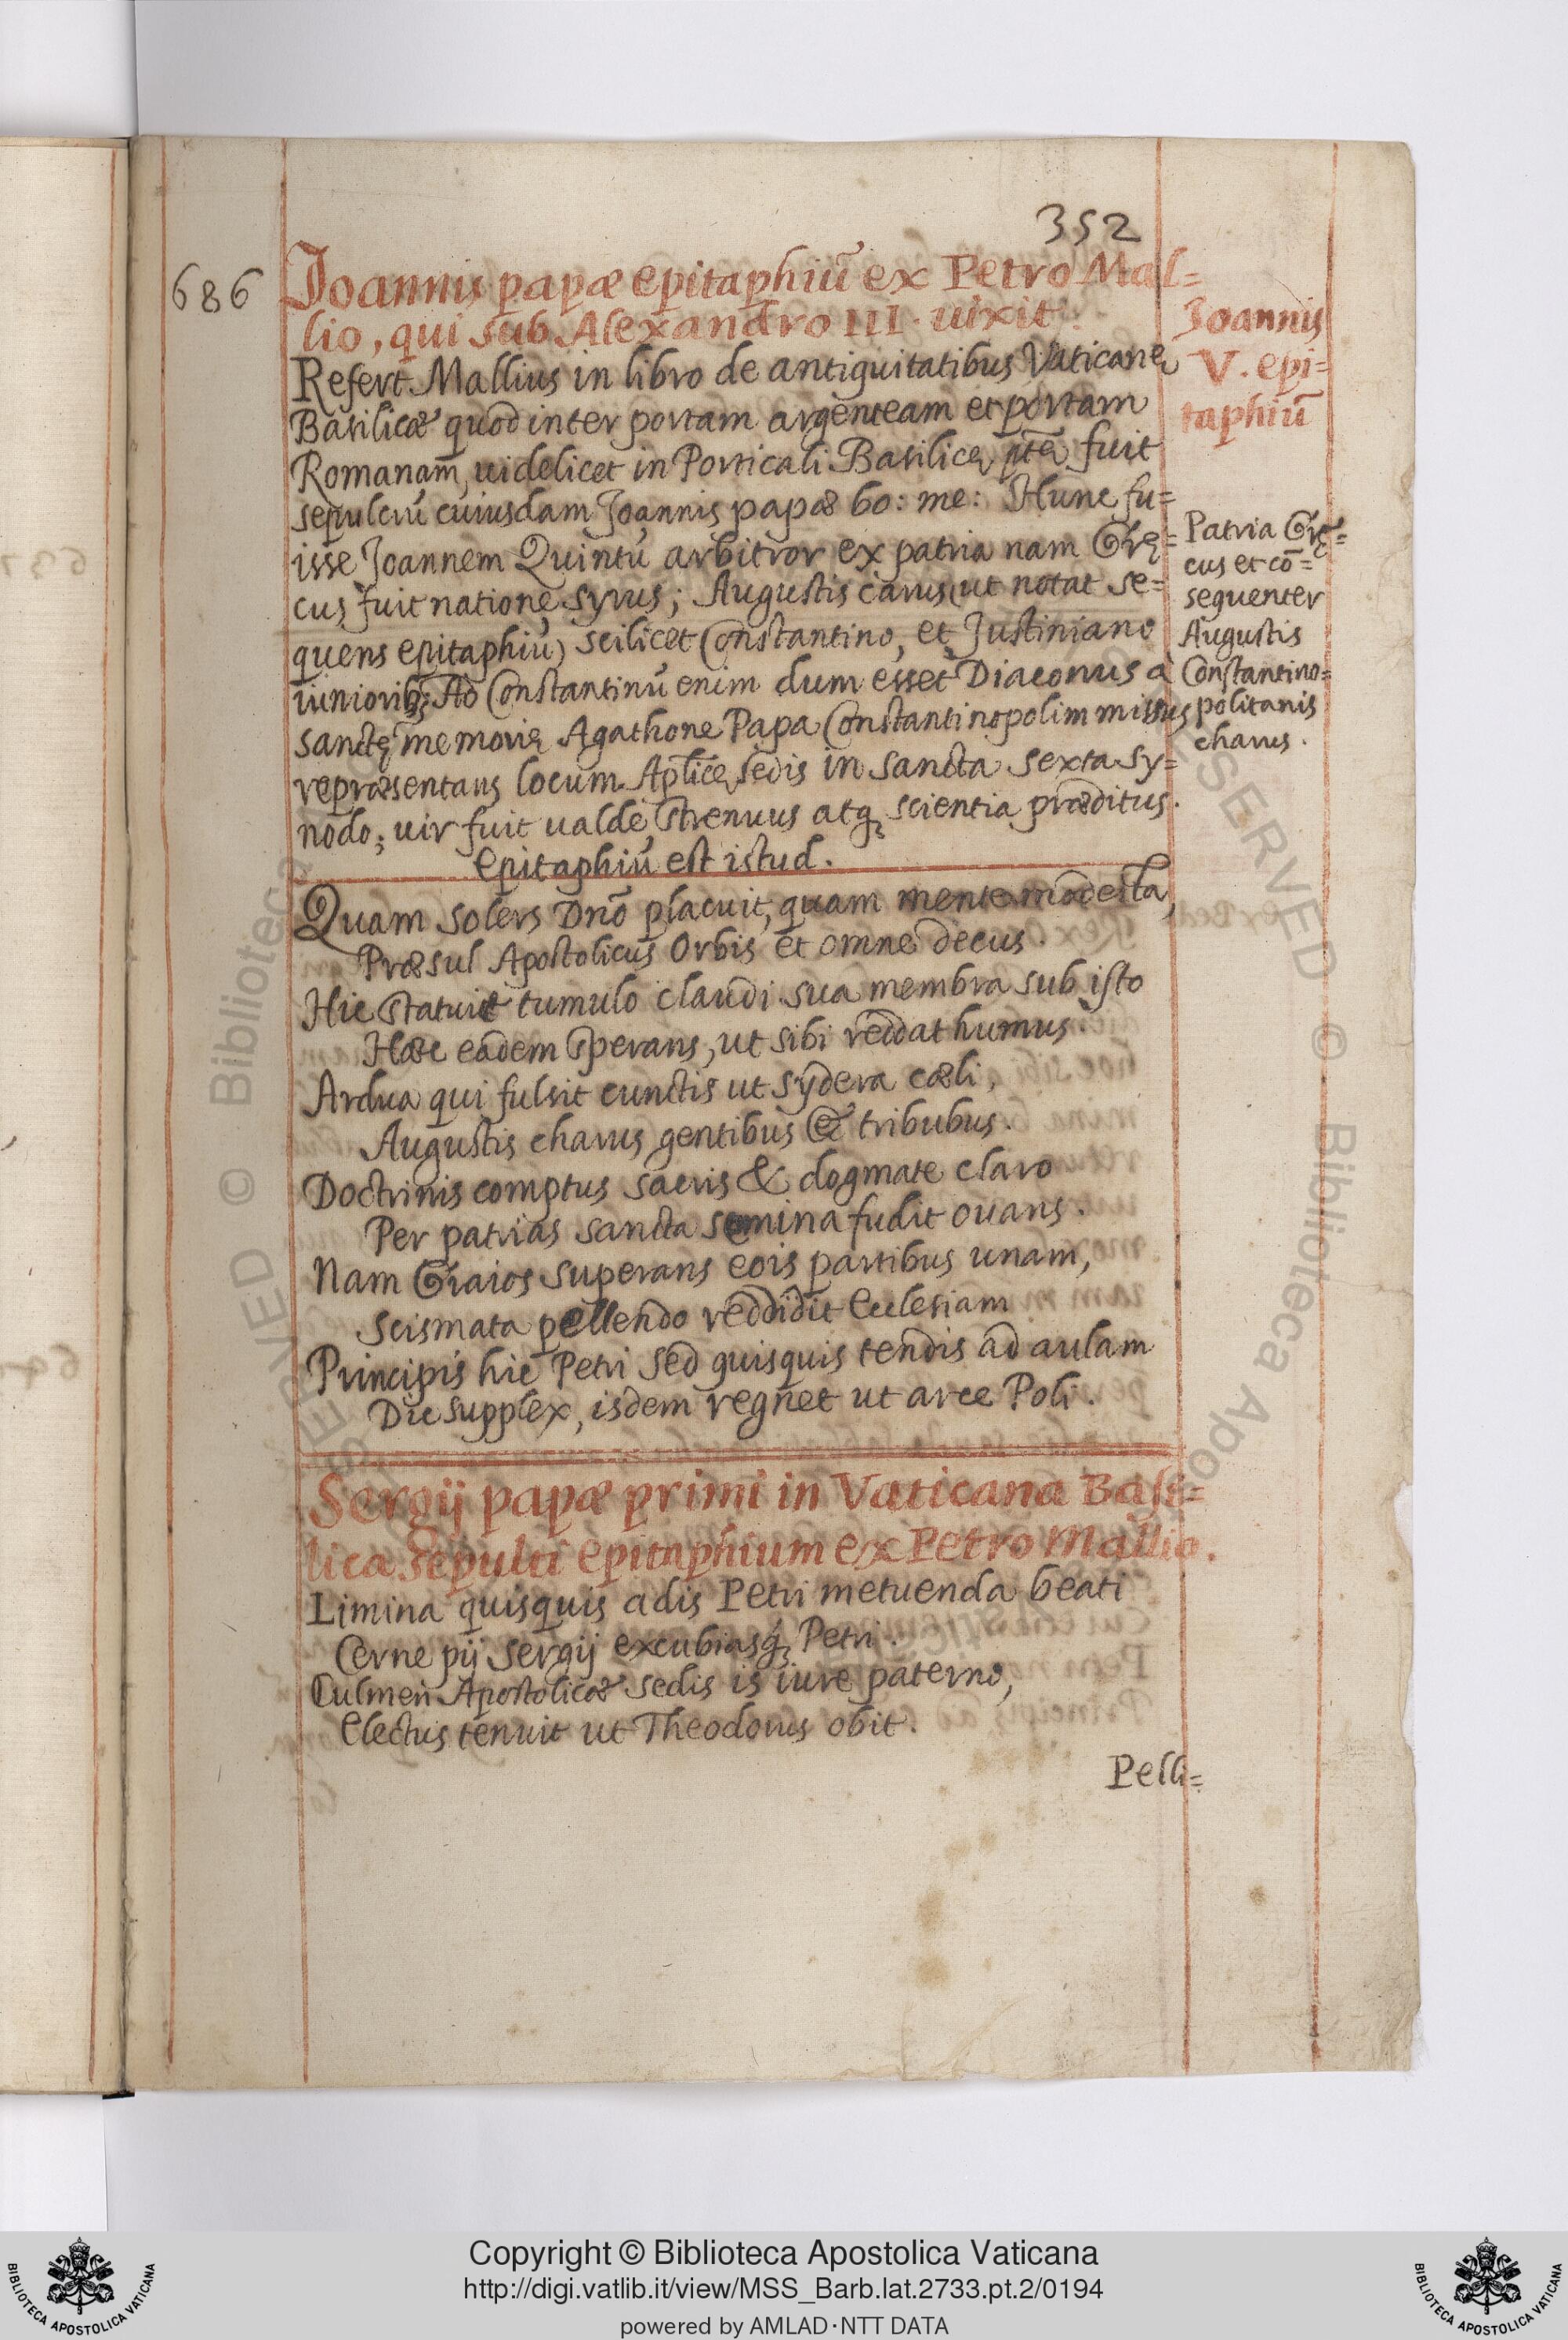 352
686
Joannis papæ epitaphiũ ex Petro Mal=
lio, qui sub Alexandro III. uixit.
Joannis
V. epi=
taphiũ
Refert Mallius in libro de antiquitatibus Vaticanę
Basilicæ quod inter portam argenteam et portam
Romanam, uidelicet in Porticali Basilicę ptę fuit
sepulcrũ cuiusdam Joannis papæ bo: me: Hunc fu=
isse Joannem Quintũ arbitror ex patria nam Grę=
cus fuit natione syrus; Augustis carus (ut notat se=
quens epitaphiũ) scilicet Constantino, et Justiniano
iuniorib; Ad Constantinũ enim dum esset Diaconus à
sanctę memorię Agathone Papa Constantinopolim missus
repræsentans locum Aplicę sedis in sancta sexta sy=
nodo; uir fuit ualde strenuus atq; scientia præditus.
Epitaphiũ est istud.
Patria Grę=
cus et cõ=
sequenter
Augustis
Constantino=
politanis
charus.
Quam solers Dño placuit, quam mente modesta,
Præsul Apostolicus Orbis et omne decus.
Hic statuit tumulo claudi sua membra sub isto
Hæc eadem sperans, ut sibi reddat humus.
Ardua qui fulsit cunctis ut sydera cæli,
Augustis charus gentibus & tribubus.
Doctrinis comptus sacris & dogmate claro
Per patrias sancta semina fudit ouans.
Nam Graios superans eois partibus unam,
Scismata pellendo reddidit Ecclesiam
Principis hic Petri sed quisquis tendis ad aulam
Dic supplex, isdem regnet ut arce Poli.
Sergij papæ primi in Vaticana Basi=
lica sepulti epitaphium ex Petro Mallio.
Limina quisquis adis Petri metuenda beati
Cerne pij Sergij excubiasq; Petri.
Culmen Apostolicæ sedis is iure paterno,
Electus tenuit ut Theodorus obit.
Pelli=
Copyright © Biblioteca Apostolica Vaticana
http://digi.vatlib.it/view/MSS_Barb.lat.2733.pt.2/0194
powered by AMLAD·NTT DATA